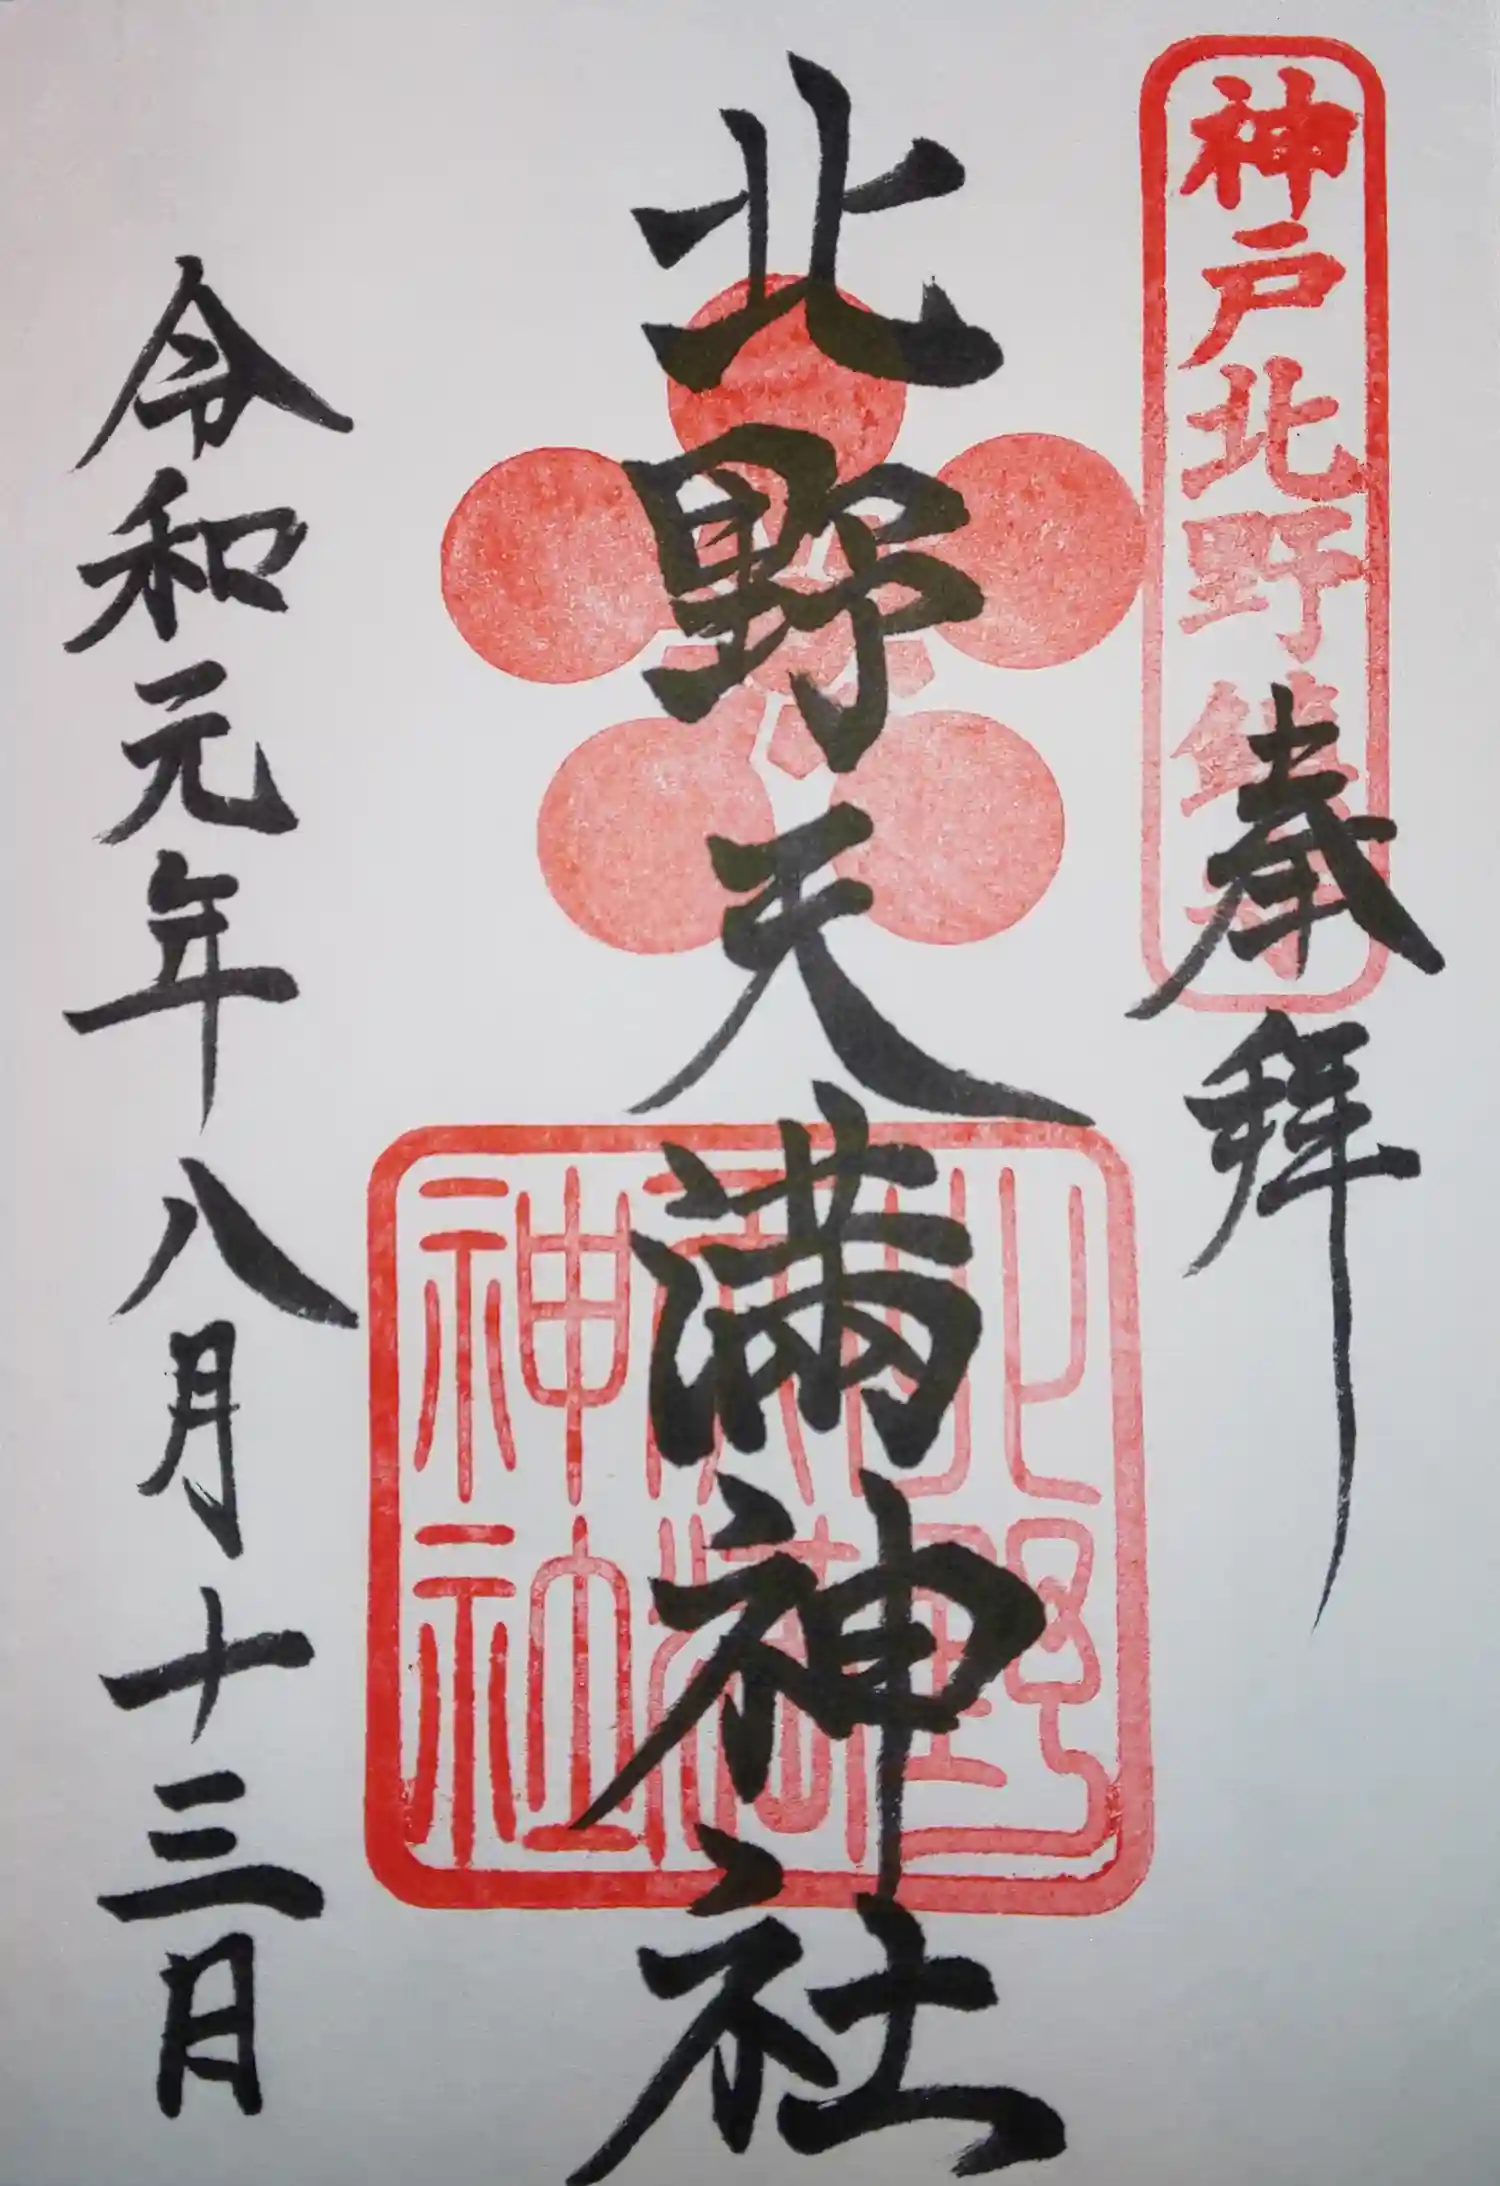 神戸北野鎮守
奉拝
北野天満神社
北野
天満
神社
令和元年八月十三日